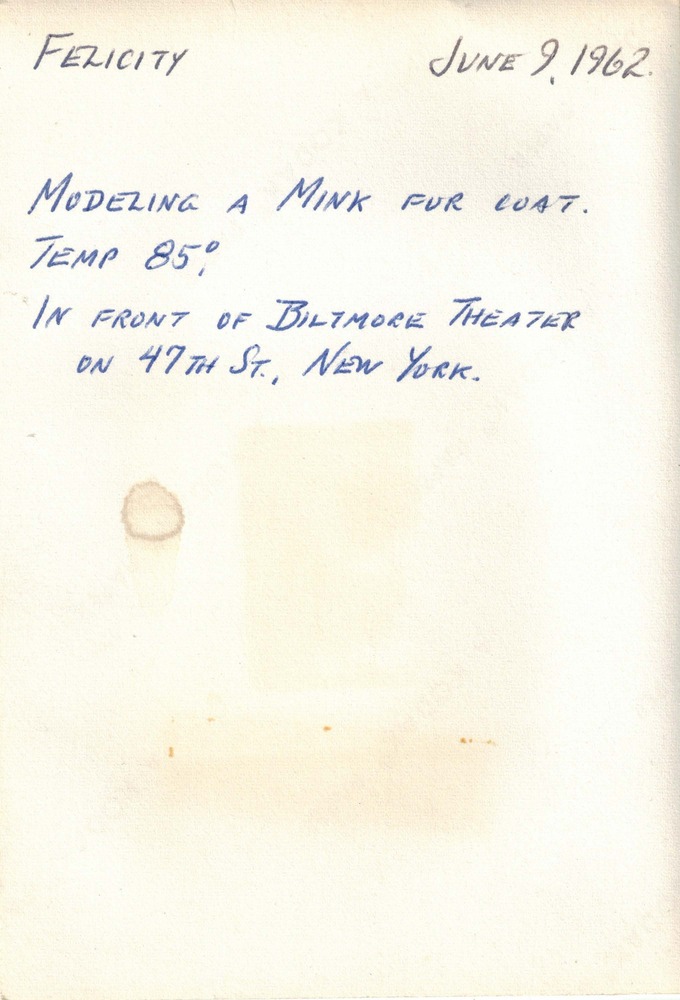 FELICITY JUNE 9, 1962.
MODELING A MINK FUR COAT.
TEMP 85°.
IN FRONT OF BILTMORE THEATER
ON 47TH ST., NEW YORK.